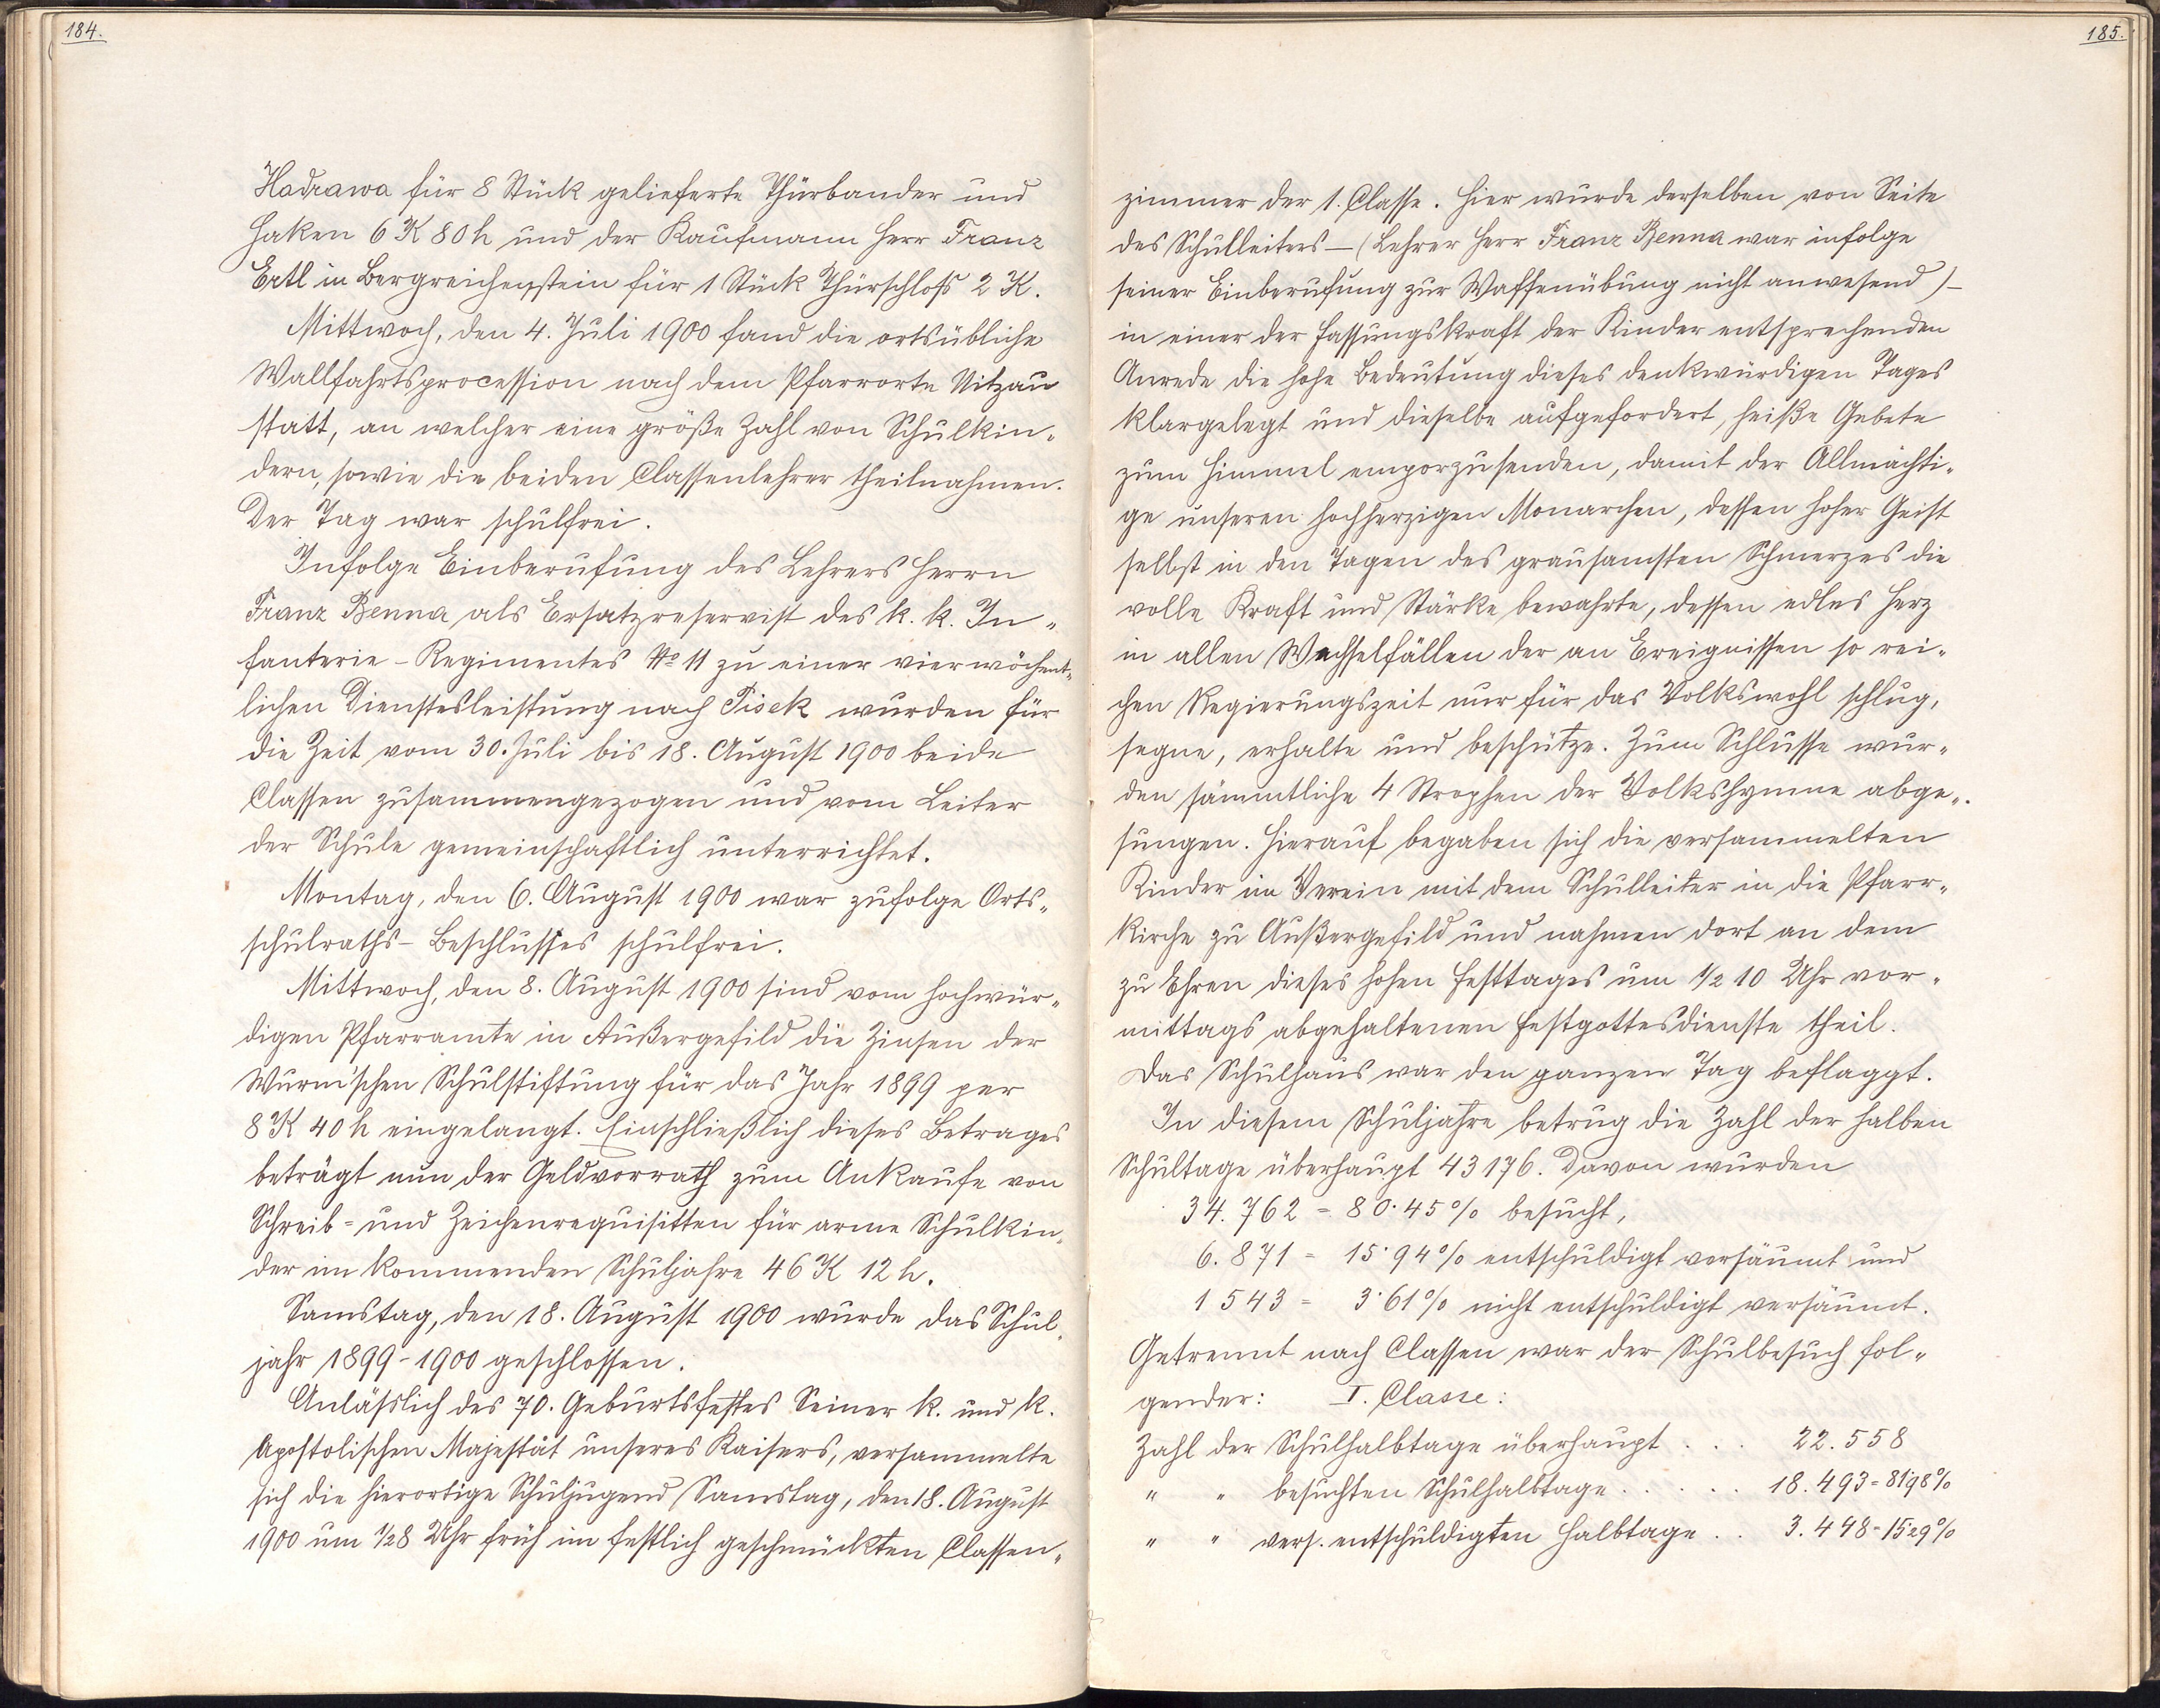 184.
Hadrawa für 8 Stück gelieferte Thürbander und
Haken 6 K 80 h und der Kaufmann Herr Franz
Ertl in Bergreichenstein für 1 Stück Thürschloß 2 K.
Mittwoch, den 4. Juli 1900 fand die ortsübliche
Wallfahrtsprocession nach dem Pfarrorte Nitzau
statt, an welcher eine große Zahl von Schulkin-
dern, sowie die beiden Classenlehrer theilnahmen.
Der Tag war schulfrei.
Infolge Einberufung des Lehrers Herrn
Franz Benna als Ersatzreservist des k. k. In-
fanterie-Regimentes No 11 zu einer vierwöchent-
lichen Dienstesleistung nach Pisek wurden für
die Zeit vom 30. Juli bis 18. August 1900 beide
Classen zusammengezogen und vom Leiter
der Schule gemeinschaftlich unterrichtet.
Montag, den 6. August 1900 war zufolge Orts-
schulraths-Beschlusses schulfrei.
Mittwoch, den 8. August 1900 sind vom hochwür-
digen Pfarramte in Außergefild die Zinsen der
Wurm'schen Schulstiftung für das Jahr 1899 per
8 K 40 h eingelangt. Einschließlich dieses Betrages
beträgt nun der Geldvorrath zum Ankaufe von
Schreib- und Zeichenrequisitten für arme Schulkin-
der im kommenden Schuljahre 46 K 12 h.
Samstag, den 18. August 1900 wurde das Schul-
jahr 1899-1900 geschlossen.
Anläßlich des 70. Geburtsfestes Seiner k. und k.
Apostolischen Majestät unseres Kaisers, versammelte
sich die hierortige Schuljugend Samstag, den 18. August
1900 um 1/28 Uhr früh im festlich geschmückten Classen-
185.
zimmer der 1. Classe. Hier wurde derselben von Seite
des Schulleiters – (Lehrer Herr Franz Benna war infolge
seiner Einberufung zur Waffenübung nicht anwesend) –
in einer der Fassungskraft der Kinder entsprechenden
Anrede die hohe Bedeutung dieses denkwürdigen Tages
klargelegt und dieselbe aufgefordert, heiße Gebete
zum Himmel emporzusenden, damit der Allmächti-
ge unseren hochherzigen Monarchen, dessen hoher Geist
selbst in den Tagen des grausamsten Schmerzes die
volle Kraft und Stärke bewahrte, dessen edles Herz
in allen Wechselfällen der an Ereignissen so rei-
chen Regierungszeit nur für das Volkswohl schlug,
segne, erhalte und beschütze. Zum Schlusse wur-
den sämmtliche 4 Strophen der Volkshymne abge-
sungen. Hierauf begaben sich die versammelten
Kinder im Verein mit dem Schulleiter in die Pfarr-
kirche zu Außergefild und nahmen dort an dem
zu Ehren dieses hohen Festtages um 1/2 10 Uhr vor-
mittags abgehaltenen Festgottesdienste theil.
Das Schulhaus war den ganzen Tag beflaggt.
In diesem Schuljahre betrug die Zahl der halben
Schultage überhaupt 43176. Davon wurden
34.762 = 80·45% besucht,
6.871 = 15·94% entschuldigt versäumt und
1543 = 3·61% nicht entschuldigt versäumt.
Getrennt nach Classen war der Schulbesuch fol-
gender: I. Classe:
Zahl der Schulhalbtage überhaupt . . . 22.558
" " besuchten Schulhalbtage . . . . . 18.493 = 81·98%
" " vers. entschuldigten Halbtage . . 3.448 = 15·29%